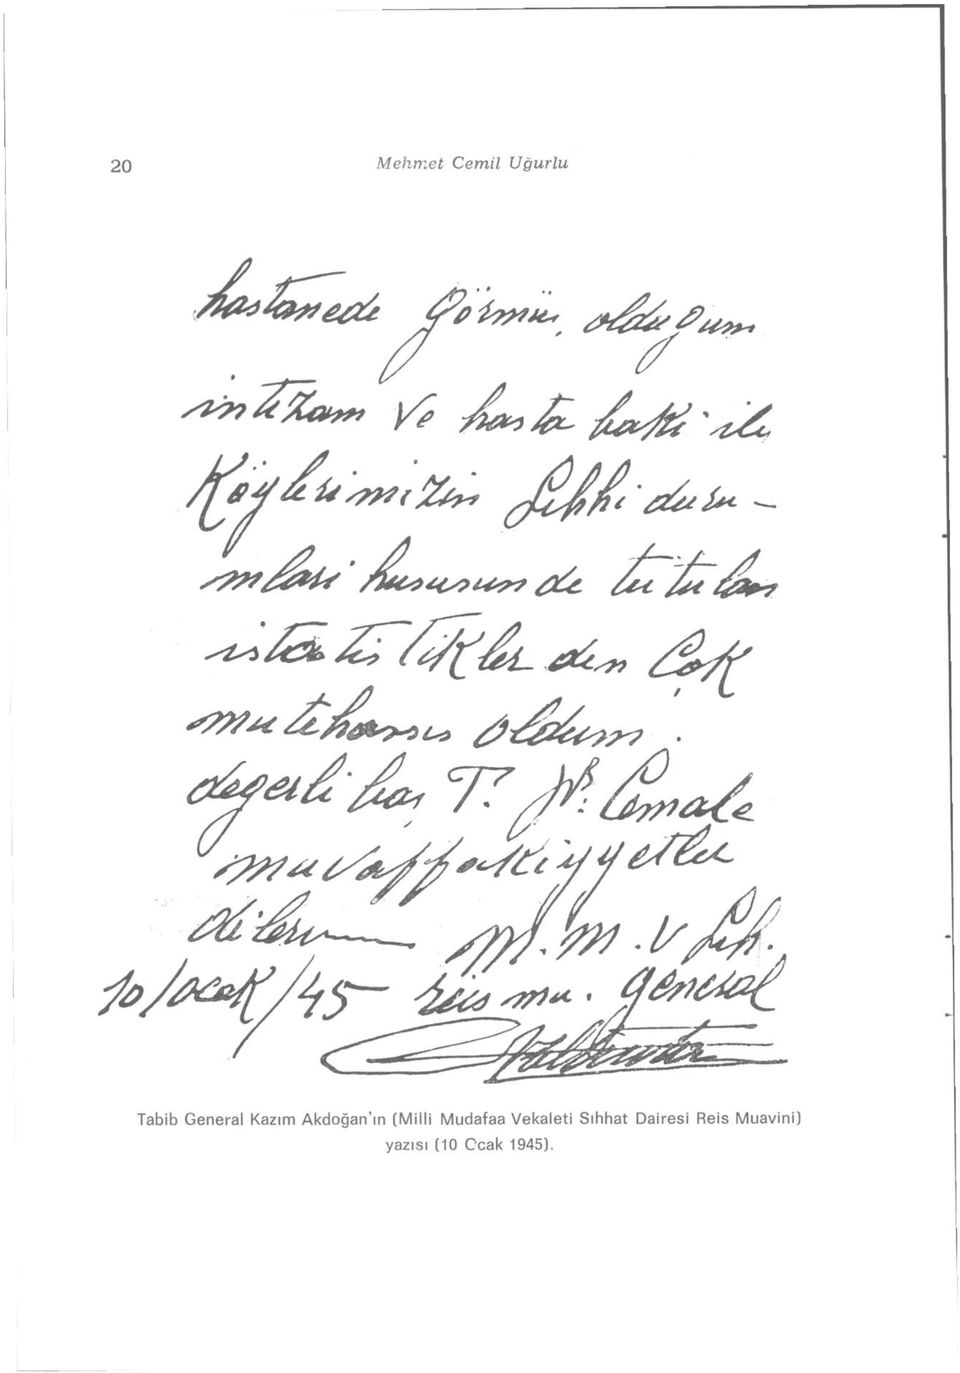 20 Mehmet Cemil Uğurlu
hastanede görmüş olduğum
intizam ve hasta baki ile
Köylerimizin Sıhhi duru-
mlari hususunde tutulan
istatistikler den Çok
mutehassis oldum.
degerli baş T. Dr: Cemale
muvaffakiyyetler
dilerim M.M.V Sıh.
10/ocak/45 reis mu. general
Tabib General Kazım Akdoğan'ın (Milli Mudafaa Vekaleti Sıhhat Dairesi Reis Muavini)
yazısı (10 Ocak 1945).